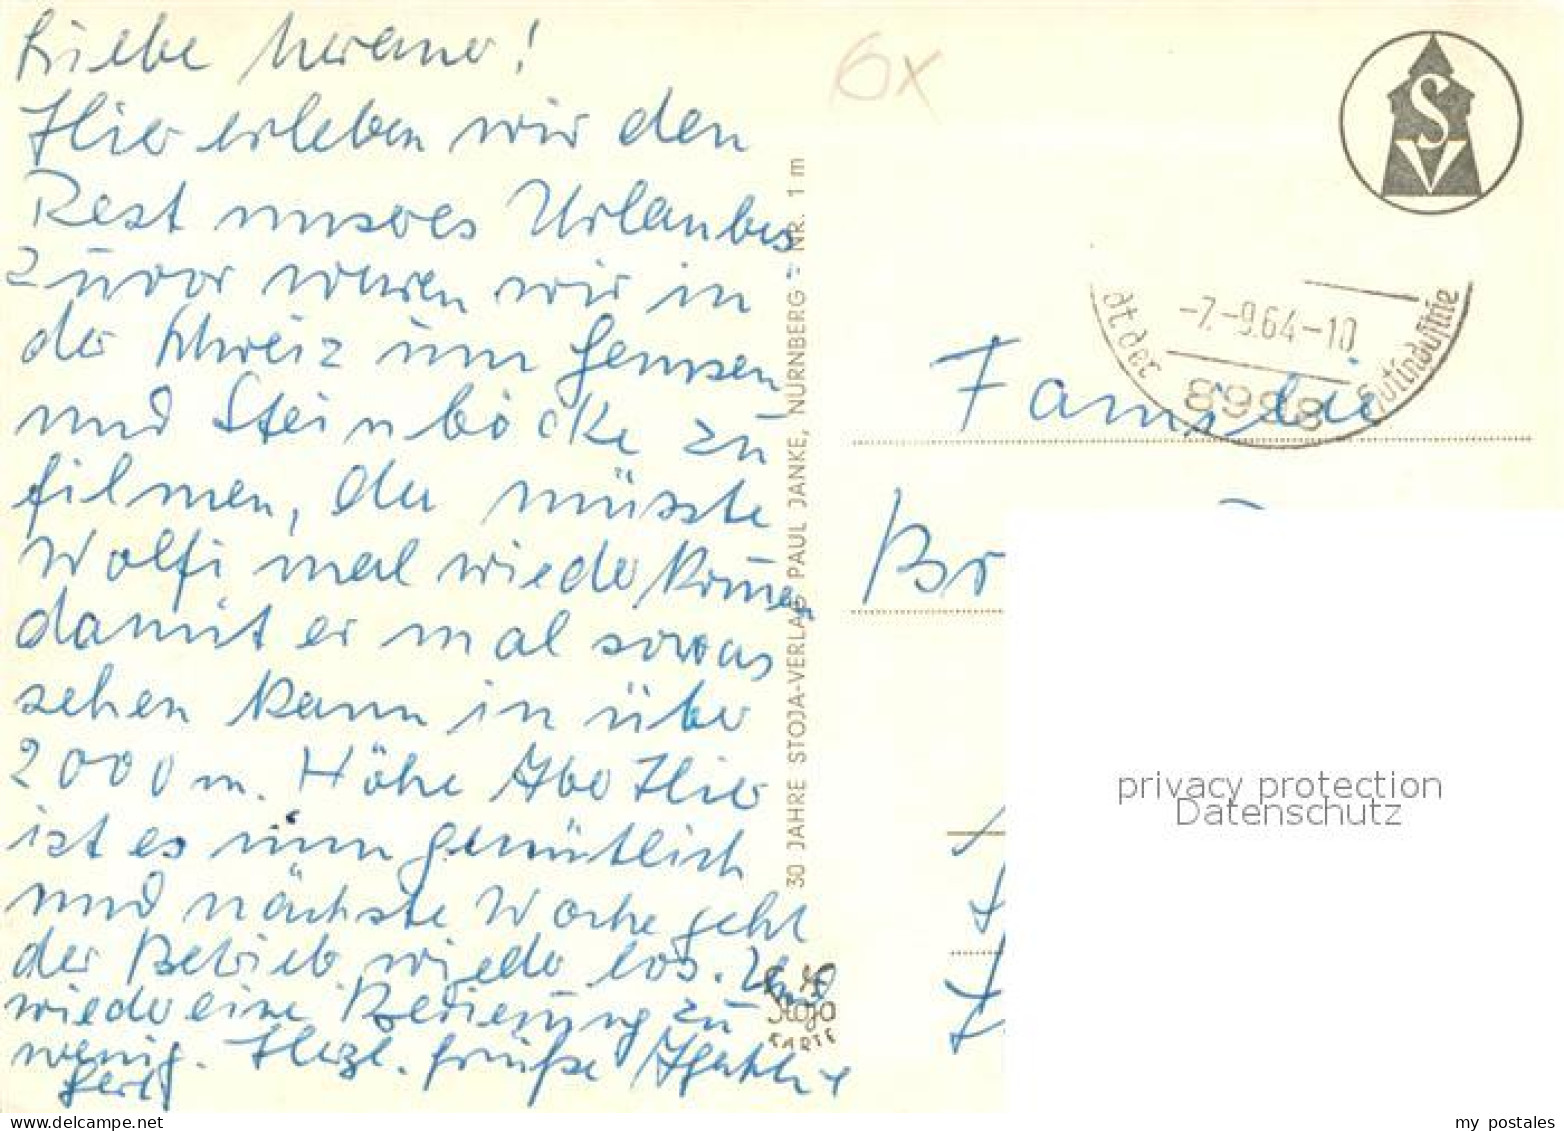 Liebe
Hier erleben wir den
Rest unseres Urlaubes
zuvor waren wir in
der Schweiz um Gemsen
und Steinböcke zu
filmen, da müsste
Wolfi mal wieder kommen
damit er mal sowas
sehen kann in über
2000 m. Höhe Aber Hier
ist es nun gemütlich
und nächste Woche geht
der Betrieb wieder los. Und
wieder eine Bedienung zu
wenig. Herzl. Grüße
6x
S V
30 JAHRE STOJA-VERLAG PAUL JANKE, NÜRNBERG - NR. 1 m
Stoja
KARTE
-7.-9.64-10
dt der
8998
Familie
Br
privacy protection
Datenschutz
my postales